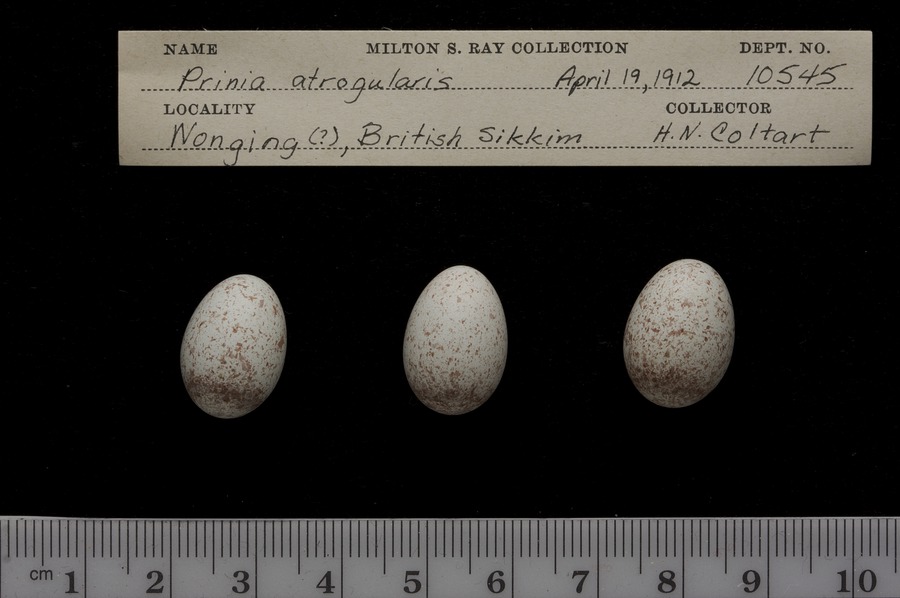 NAME MILTON S. RAY COLLECTION DEPT. NO.
Prinia atrogularis April 19, 1912 10545
LOCALITY COLLECTOR
Nonging (?), British Sikkim H.N. Coltart
cm 1 2 3 4 5 6 7 8 9 10